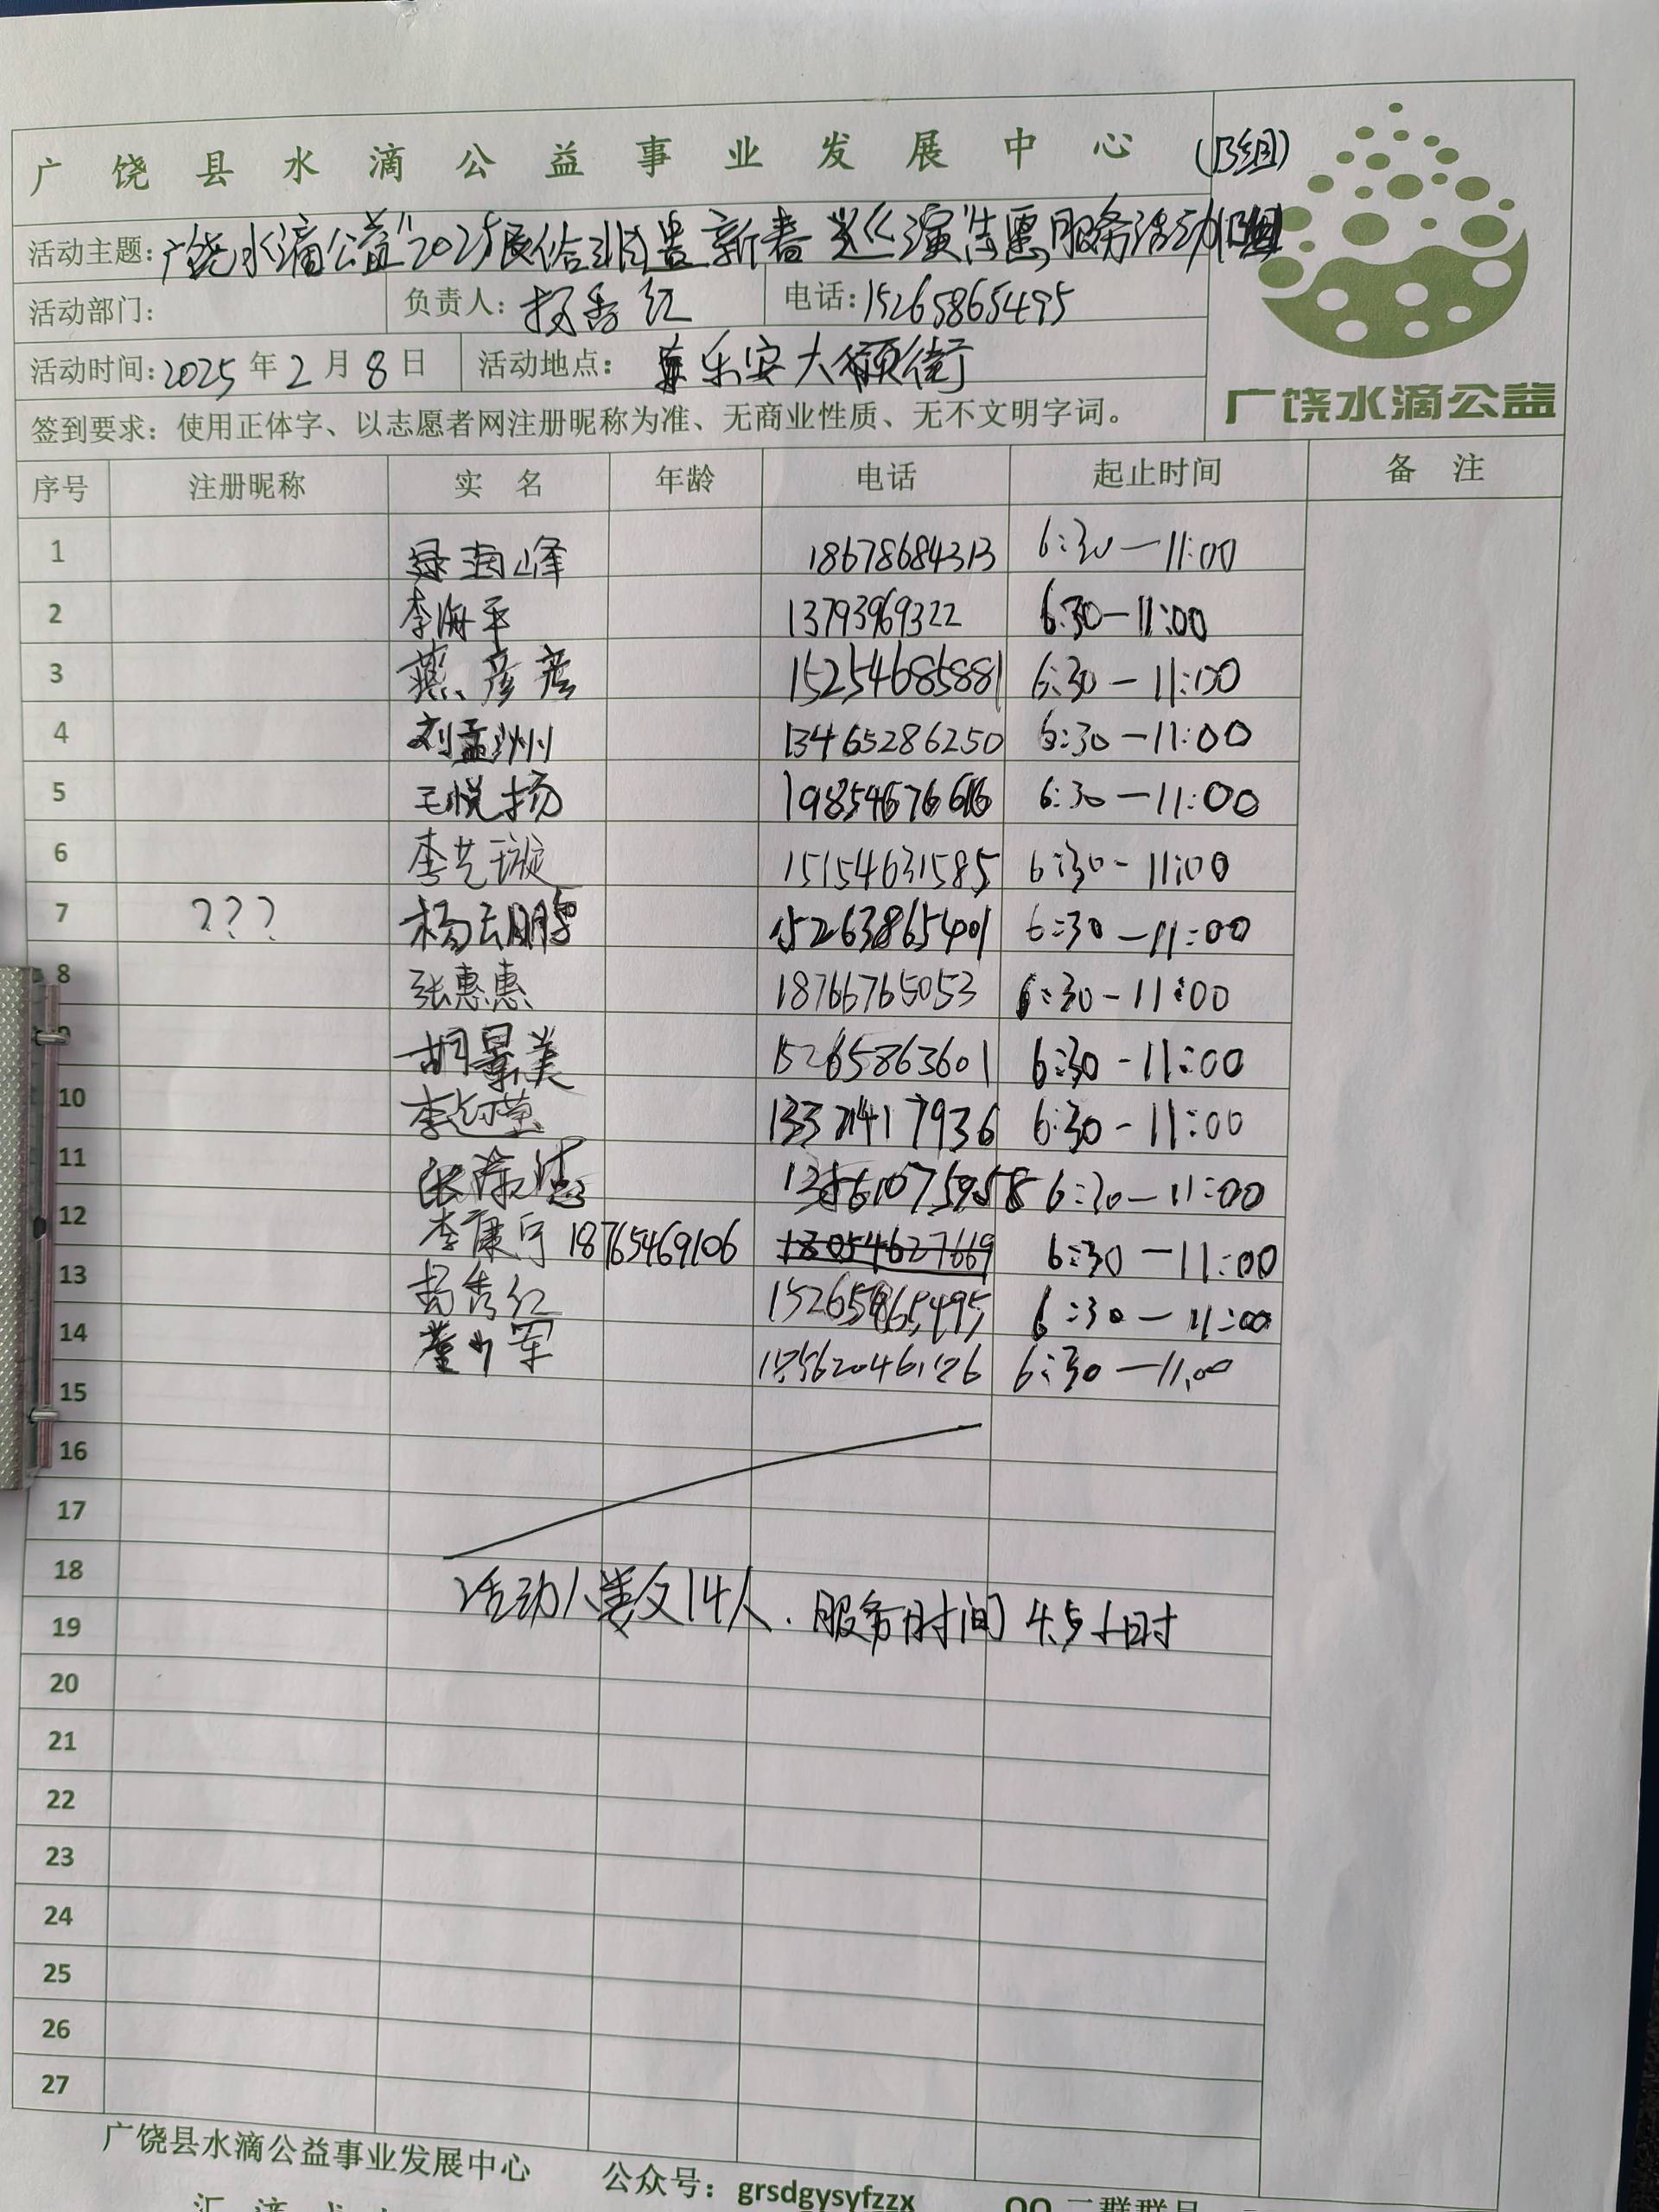 广饶县水滴公益事业发展中心 (B组)
活动主题: 广饶水滴公益"2025 新春 巡演"志愿服务活动
活动部门: 负责人: 秀红 电话: 15265865495
活动时间: 2025年2月8日 活动地点: 乐安大 街
广饶水滴公益
签到要求: 使用正体字、以志愿者网注册昵称为准、无商业性质、无不文明字词。
序号 注册昵称 实名 年龄 电话 起止时间 备注
1 润峰 18678684313 6:30—11:00
2 李海平 13793969322 6:30—11:00
3 燕彦彦 15254685881 6:30—11:00
4 刘孟洲 13465286250 6:30—11:00
5 王悦扬 6:30—11:00
6 李艺璇 15154631585 6:30-11:00
7 ??? 杨云鹏 15263865401 6:30—11:00
8 张惠惠 18766765053 6:30-11:00
9 胡景美 15265863601 6:30-11:00
10 李 莹 6:30-11:00
11 张 6:30—11:00
12 李康宁 18765469106 18054627669 6:30—11:00
13 秀红 15265865495 6:30—11:00
14 董少军 6:30—11:00
15
16
17
18
活动人数14人. 服务时间4.5小时
19
20
21
22
23
24
25
26
27
广饶县水滴公益事业发展中心 公众号: grsdgysyfzzx